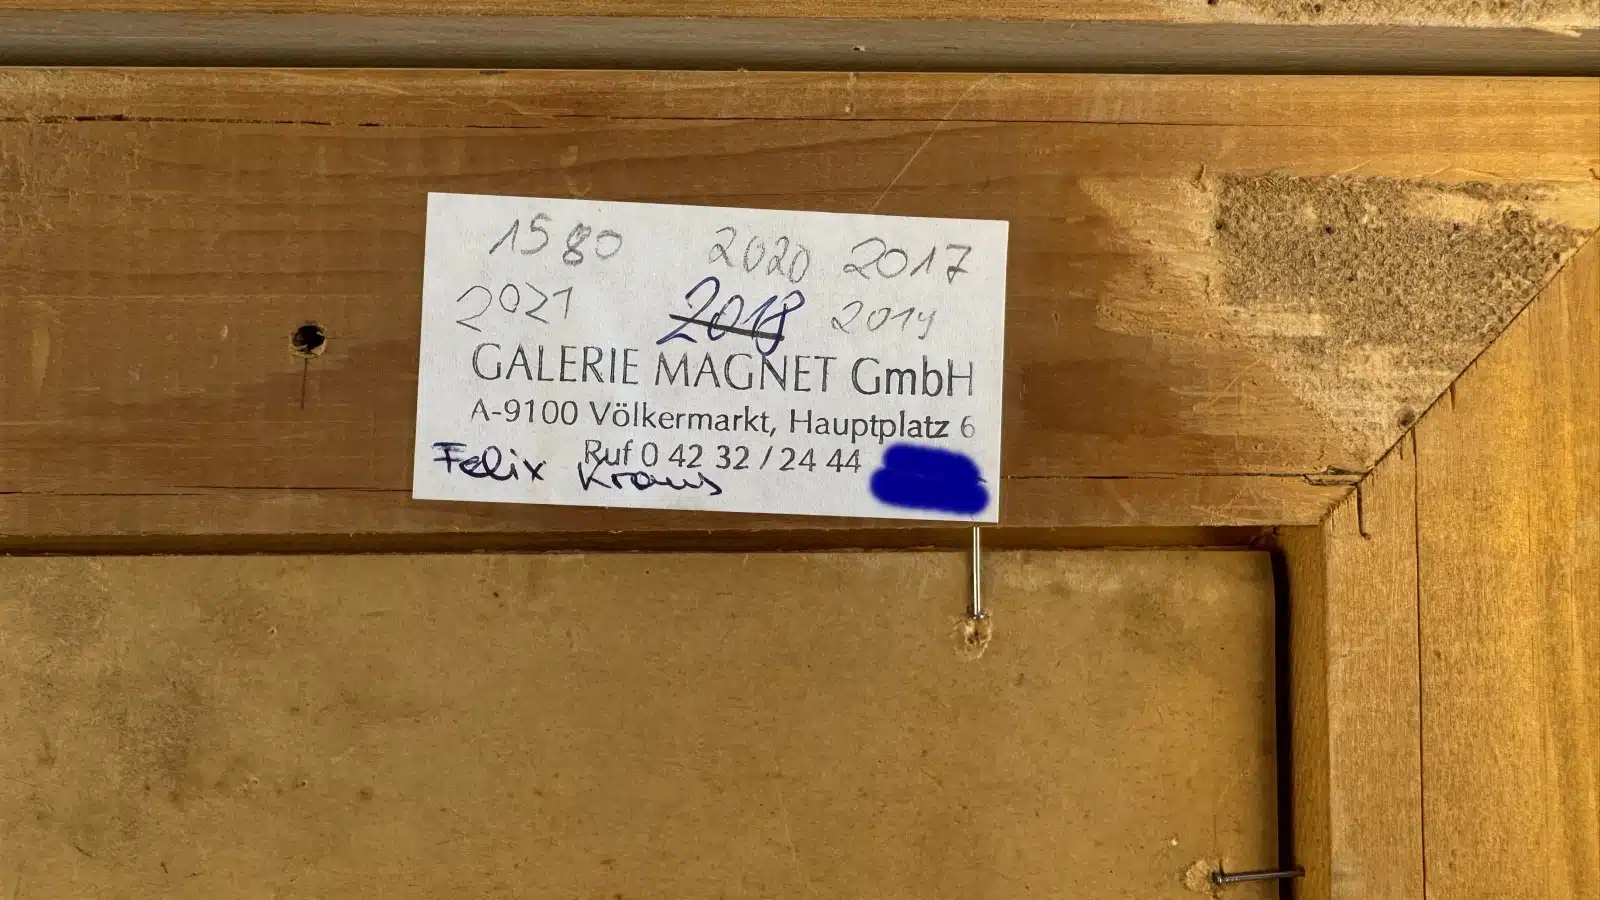 1580 2020 2017
2021 2018 2014
GALERIE MAGNET GmbH
A-9100 Völkermarkt, Hauptplatz 6
Ruf 0 42 32 / 24 44
Felix Kraus